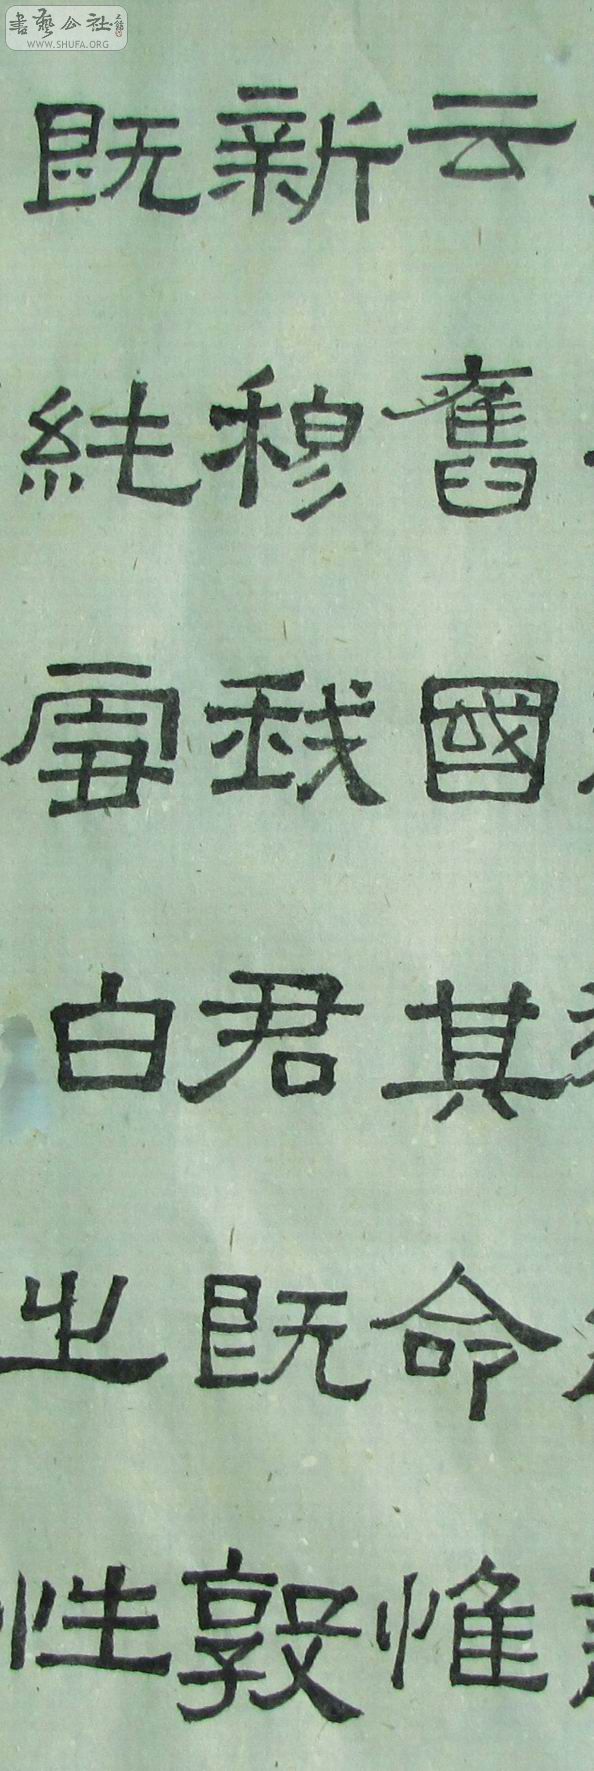 書藝公社
WWW.SHUFA.ORG
云舊國其命惟
新穆我君既敦
既純雪白之性